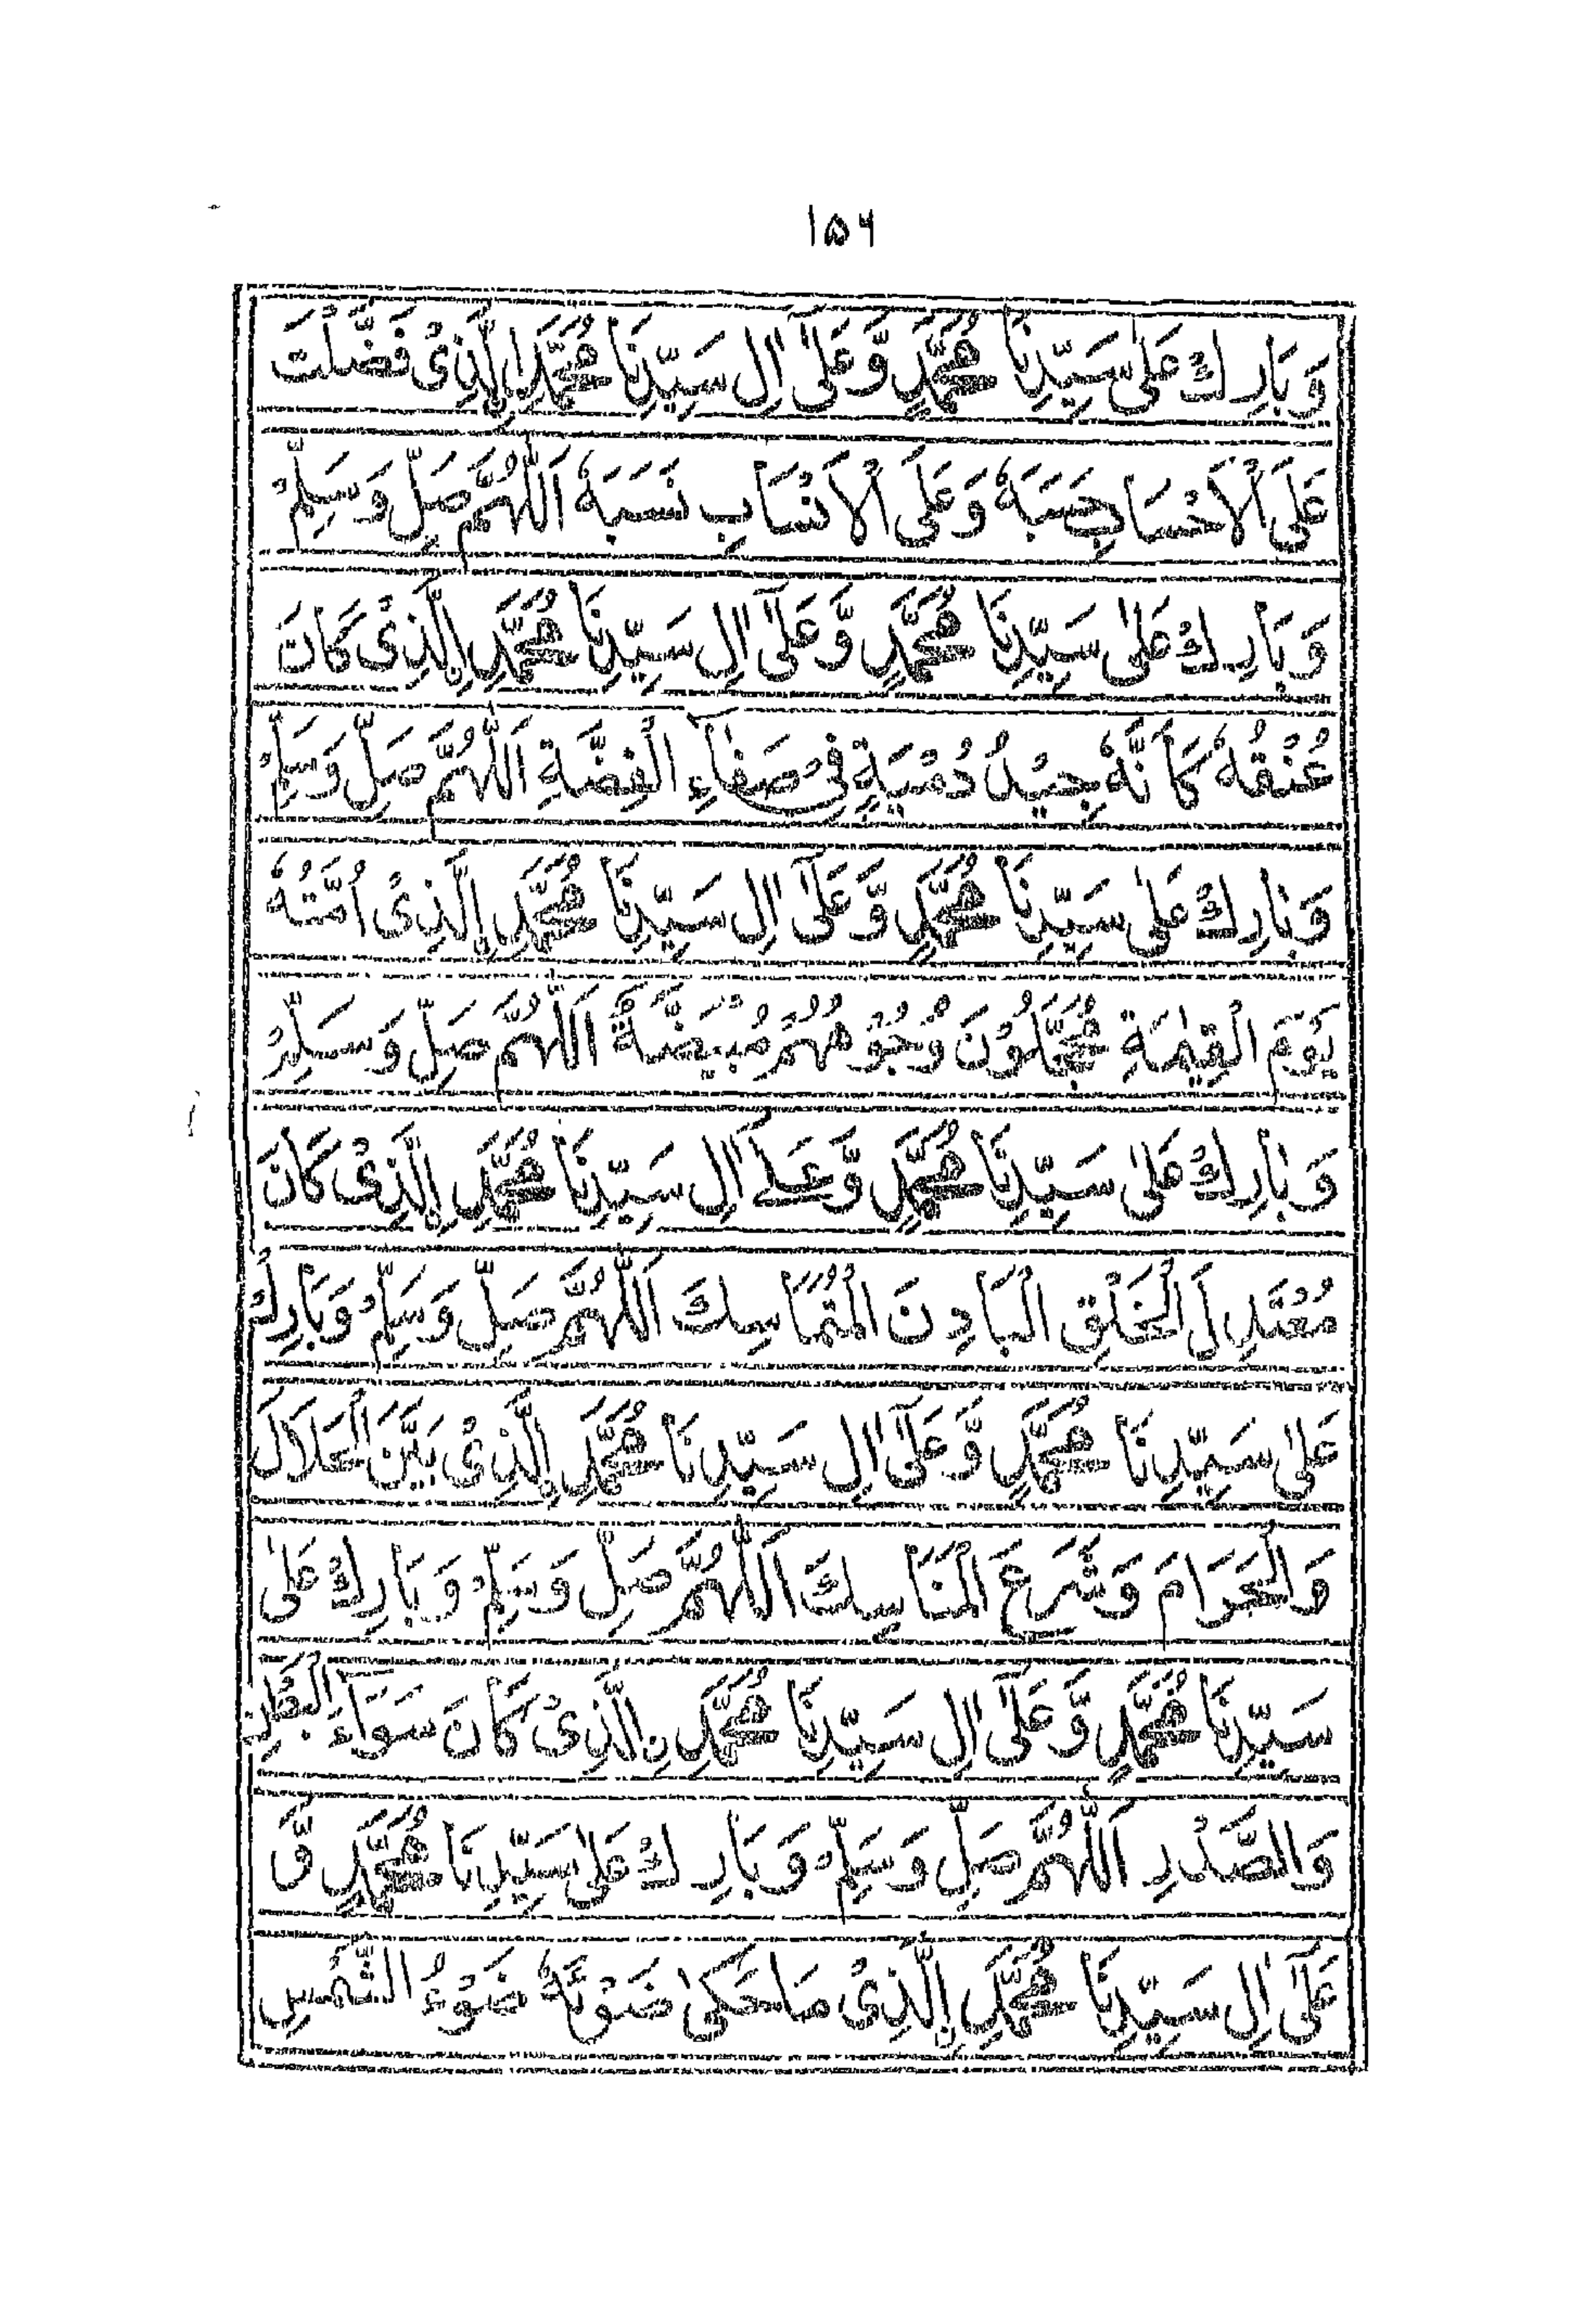 ۱۵۶
وَبَارِكْ عَلٰى سَيِّدِنَا مُحَمَّدٍ وَّعَلٰٓى اٰلِ سَيِّدِنَا مُحَمَّدِ ِۨالَّذِىْ فَضَّلْتَ
عَلَى الْاَحْسَابِ حَسَبَهٗ وَعَلَى الْاَنْسَابِ نَسَبَهٗ اَللّٰهُمَّ صَلِّ وَسَلِّمْ
وَبَارِكْ عَلٰى سَيِّدِنَا مُحَمَّدٍ وَّعَلٰٓى اٰلِ سَيِّدِنَا مُحَمَّدِ ِۨالَّذِىْ كَانَ
عُنْقُهٗ كَاَنَّهٗ جِيْدُ دُمْيَةٍ فِىْ صَفَاءِ الْفِضَّةِ اَللّٰهُمَّ صَلِّ وَسَلِّمْ
وَبَارِكْ عَلٰى سَيِّدِنَا مُحَمَّدٍ وَّعَلٰٓى اٰلِ سَيِّدِنَا مُحَمَّدِ ِۨالَّذِىْ اُمَّتُهٗ
يَوْمَ الْقِيٰمَةِ مُحَجَّلُوْنَ وُجُوْهُهُمْ مُبْيَضَّةٌ اَللّٰهُمَّ صَلِّ وَسَلِّمْ
وَبَارِكْ عَلٰى سَيِّدِنَا مُحَمَّدٍ وَّعَلٰٓى اٰلِ سَيِّدِنَا مُحَمَّدِ ِۨالَّذِىْ كَانَ
مُعْتَدِلَ الْخَلْقِ الْبَادِنَ الْمُتَمَاسِكَ اَللّٰهُمَّ صَلِّ وَسَلِّمْ وَبَارِكْ
عَلٰى سَيِّدِنَا مُحَمَّدٍ وَّعَلٰٓى اٰلِ سَيِّدِنَا مُحَمَّدِ ِۨالَّذِىْ بَيَّنَ الْحَلَالَ
وَالْحَرَامَ وَشَرَعَ الْمَنَاسِكَ اَللّٰهُمَّ صَلِّ وَسَلِّمْ وَبَارِكْ عَلٰى
سَيِّدِنَا مُحَمَّدٍ وَّعَلٰٓى اٰلِ سَيِّدِنَا مُحَمَّدِ ِۨالَّذِىْ كَانَ سَوَآءَ الْبَطْنِ
وَالصَّدْرِ اَللّٰهُمَّ صَلِّ وَسَلِّمْ وَبَارِكْ عَلٰى سَيِّدِنَا مُحَمَّدٍ وَّ
عَلٰٓى اٰلِ سَيِّدِنَا مُحَمَّدِ ِۨالَّذِىْ مَا حَكٰى ضَوْئَهٗ ضَوْءُ الشَّمْسِ